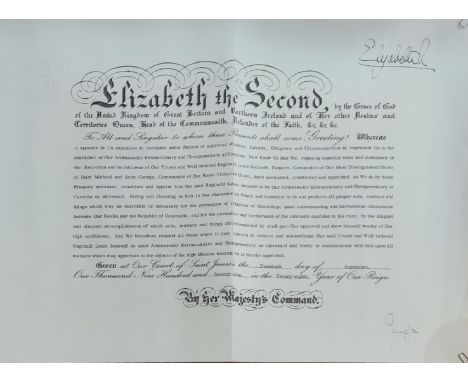 Elizabeth R
Elizabeth the Second, by the Grace of God
of the United Kingdom of Great Britain and Northern Ireland and of Her other Realms and
Territories Queen, Head of the Commonwealth, Defender of the Faith, &c. &c. &c.
To All and Singular to whom these Presents shall come, Greeting! Whereas
it appears to Us expedient to nominate some Person of approved Wisdom, Loyalty, Diligence and Circumspection to represent Us in the
character of Our Ambassador Extraordinary and Plenipotentiary at Caracas; Now Know Ye that We, reposing especial trust and confidence in
the discretion and faithfulness of Our Trusty and Well-beloved Reginald Louis Secondé, Esquire, Companion of Our Most Distinguished Order
of Saint Michael and Saint George, Commander of Our Royal Victorian Order, have nominated, constituted and appointed, as We do by these
Presents nominate, constitute and appoint him the said Reginald Louis Secondé to be Our Ambassador Extraordinary and Plenipotentiary at
Caracas as aforesaid. Giving and Granting to him in that character all Power and Authority to do and perform all proper acts, matters and
things which may be desirable or necessary for the promotion of relations of friendship, good understanding and harmonious intercourse
between Our Realm and the Republic of Venezuela, and for the protection and furtherance of the interests confided to his care; by the diligent
and discreet accomplishment of which acts, matters and things aforementioned he shall gain Our approval and show himself worthy of Our
high confidence. And We therefore request all those whom it may concern to receive and acknowledge Our said Trusty and Well-beloved
Reginald Louis Secondé as such Ambassador Extraordinary and Plenipotentiary as aforesaid and freely to communicate with him upon all
matters which may appertain to the objects of the high Mission whereto he is hereby appointed.
Given at Our Court of Saint James's the Twentieth day of September,
One Thousand Nine Hundred and in the Year of Our Reign.
By Her Majesty's Command.